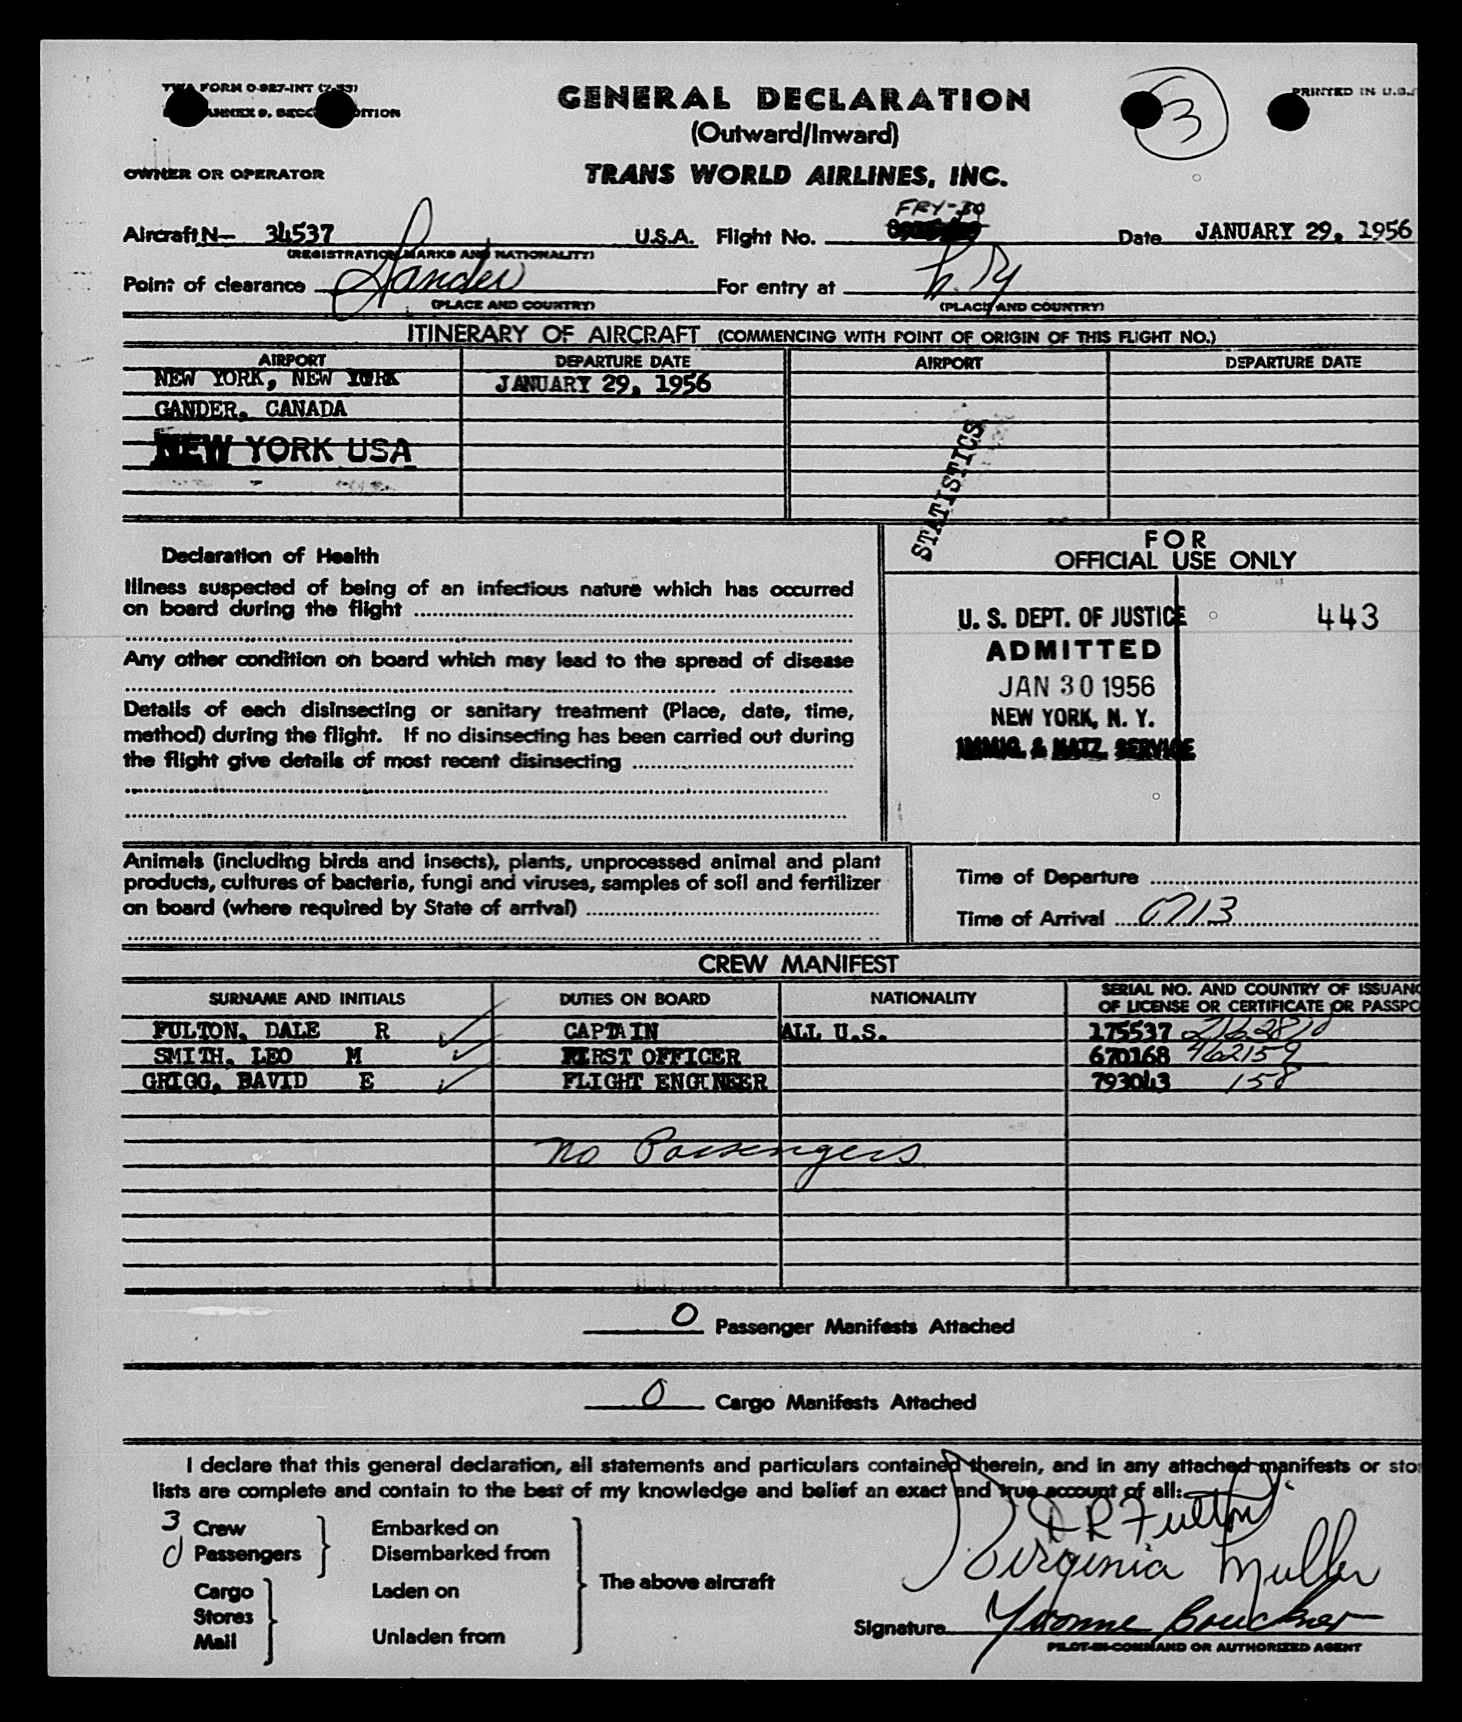 TWA FORM O-927-INT (7-53)
PRINTED IN U.S.
GENERAL DECLARATION
3
(Outward/Inward)
OWNER OR OPERATOR
TRANS WORLD AIRLINES, INC.
FRY-30
Aircraft N- 34537 U.S.A. Flight No. Date JANUARY 29, 1956
(REGISTRATION MARKS AND NATIONALITY)
Point of clearance Gander For entry at N.Y
(PLACE AND COUNTRY) (PLACE AND COUNTRY)
ITINERARY OF AIRCRAFT (COMMENCING WITH POINT OF ORIGIN OF THIS FLIGHT NO.)
AIRPORT DEPARTURE DATE AIRPORT DEPARTURE DATE
NEW YORK, NEW YORK JANUARY 29, 1956
GANDER, CANADA
NEW YORK USA
STATISTICS
Declaration of Health
Illness suspected of being of an infectious nature which has occurred
on board during the flight
Any other condition on board which may lead to the spread of disease
Details of each disinsecting or sanitary treatment (Place, date, time,
method) during the flight. If no disinsecting has been carried out during
the flight give details of most recent disinsecting
FOR
OFFICIAL USE ONLY
U. S. DEPT. OF JUSTICE 443
ADMITTED
JAN 30 1956
NEW YORK, N. Y.
IMMIG. & NATZ. SERVICE
Animals (including birds and insects), plants, unprocessed animal and plant
products, cultures of bacteria, fungi and viruses, samples of soil and fertilizer
on board (where required by State of arrival)
Time of Departure
Time of Arrival 0713
CREW MANIFEST
SURNAME AND INITIALS DUTIES ON BOARD NATIONALITY SERIAL NO. AND COUNTRY OF ISSUANC
OF LICENSE OR CERTIFICATE OR PASSPO
FULTON, DALE R CAPTAIN ALL U.S. 175537
SMITH, LEO M FIRST OFFICER 670168 962159
GRIGG, DAVID E FLIGHT ENGINEER 793043 158
No Passengers
0 Passenger Manifests Attached
0 Cargo Manifests Attached
I declare that this general declaration, all statements and particulars contained therein, and in any attached manifests or sto
lists are complete and contain to the best of my knowledge and belief an exact and true account of all:
3 Crew
0 Passengers
Embarked on
Disembarked from
Cargo
Stores
Mail
Laden on
Unladen from
The above aircraft
D R Fulton
Virginia Muller
Signature Yvonne Bouckner
PILOT-IN-COMMAND OR AUTHORIZED AGENT